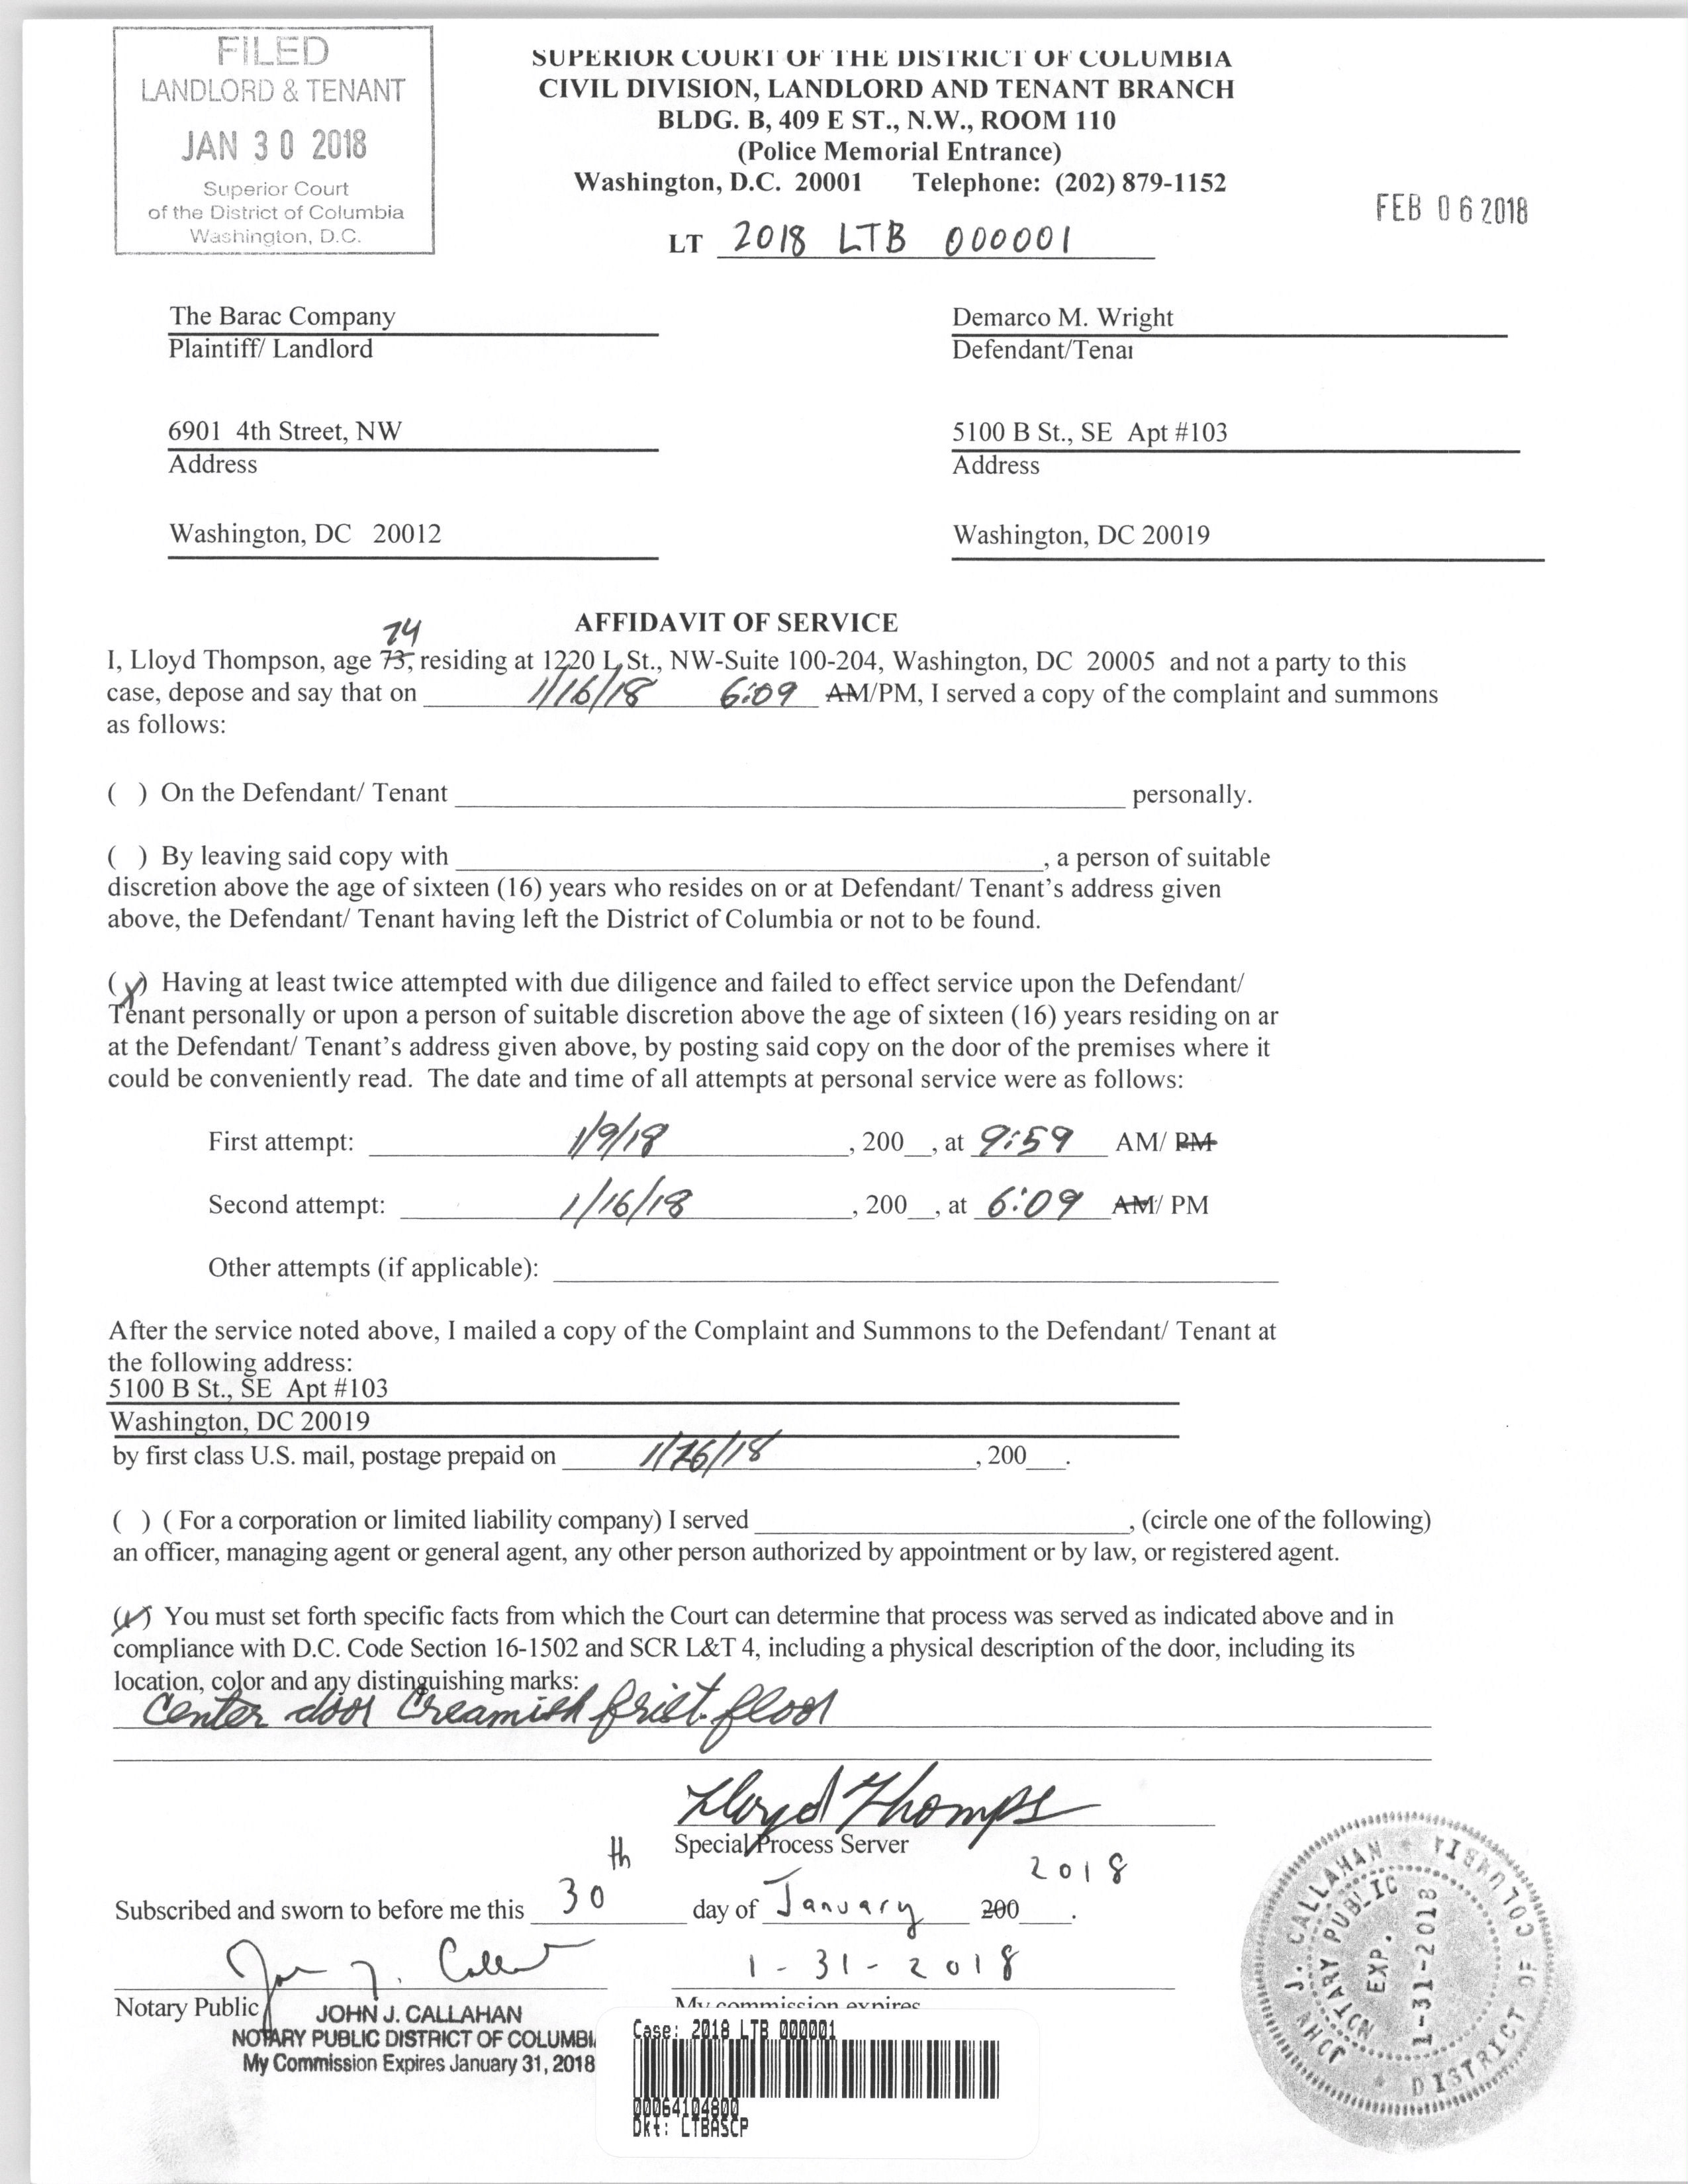 FILED
LANDLORD & TENANT
JAN 30 2018
Superior Court
of the District of Columbia
Washington, D.C.
SUPERIOR COURT OF THE DISTRICT OF COLUMBIA
CIVIL DIVISION, LANDLORD AND TENANT BRANCH
BLDG. B, 409 E ST., N.W., ROOM 110
(Police Memorial Entrance)
Washington, D.C. 20001 Telephone: (202) 879-1152
FEB 06 2018
LT 2018 LTB 000001
The Barac Company
Plaintiff/ Landlord
Demarco M. Wright
Defendant/Tenai
6901 4th Street, NW
Address
5100 B St., SE Apt #103
Address
Washington, DC 20012
Washington, DC 20019
AFFIDAVIT OF SERVICE
74
I, Lloyd Thompson, age 73, residing at 1220 L St., NW-Suite 100-204, Washington, DC 20005 and not a party to this
case, depose and say that on 1/16/18 6:09 AM/PM, I served a copy of the complaint and summons
as follows:
( ) On the Defendant/ Tenant ____ personally.
( ) By leaving said copy with ____, a person of suitable
discretion above the age of sixteen (16) years who resides on or at Defendant/ Tenant's address given
above, the Defendant/ Tenant having left the District of Columbia or not to be found.
(X) Having at least twice attempted with due diligence and failed to effect service upon the Defendant/
Tenant personally or upon a person of suitable discretion above the age of sixteen (16) years residing on ar
at the Defendant/ Tenant's address given above, by posting said copy on the door of the premises where it
could be conveniently read. The date and time of all attempts at personal service were as follows:
First attempt: 1/9/18, 200__, at 9:59 AM/ PM
Second attempt: 1/16/18, 200__, at 6:09 AM/ PM
Other attempts (if applicable):
After the service noted above, I mailed a copy of the Complaint and Summons to the Defendant/ Tenant at
the following address:
5100 B St., SE Apt #103
Washington, DC 20019
by first class U.S. mail, postage prepaid on 1/26/18, 200__.
( ) ( For a corporation or limited liability company) I served ____, (circle one of the following)
an officer, managing agent or general agent, any other person authorized by appointment or by law, or registered agent.
(X) You must set forth specific facts from which the Court can determine that process was served as indicated above and in
compliance with D.C. Code Section 16-1502 and SCR L&T 4, including a physical description of the door, including its
location, color and any distinguishing marks:
Center door Creamish frist floor
Lloyd Thomps
Special Process Server
Subscribed and sworn to before me this 30th day of January 200__. 2018
John J. Callah
1-31-2018
Notary Public
My commission expires
JOHN J. CALLAHAN
NOTARY PUBLIC DISTRICT OF COLUMBI
My Commission Expires January 31, 2018
Case: 2018 LTB 000001
00064104800
Dkt: LTBASCP
JOHN J. CALLAHAN
DISTRICT OF COLUMBIA
NOTARY PUBLIC
EXP.
1-31-2018